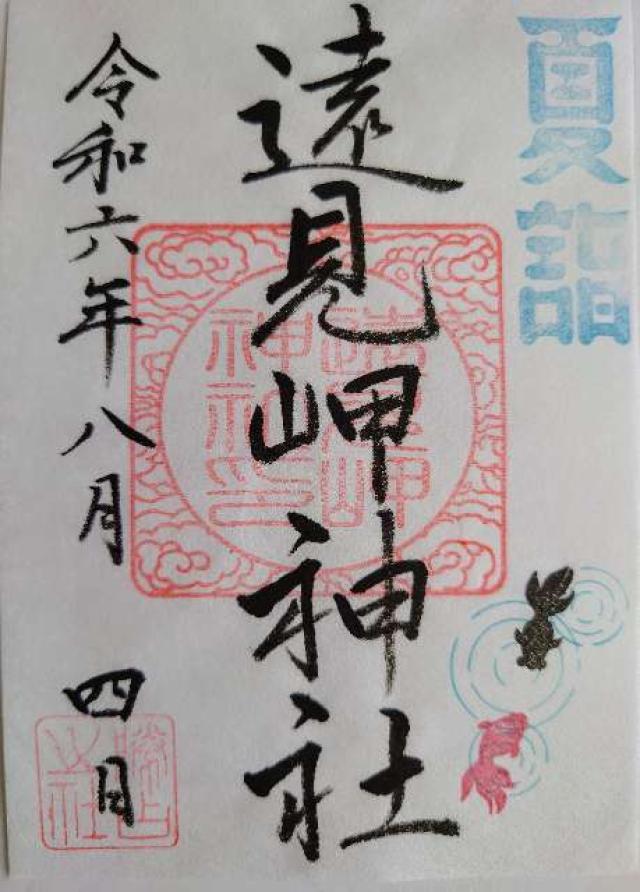 夏詣
遠見岬神社
遠見岬
神社印
令和六年八月四日